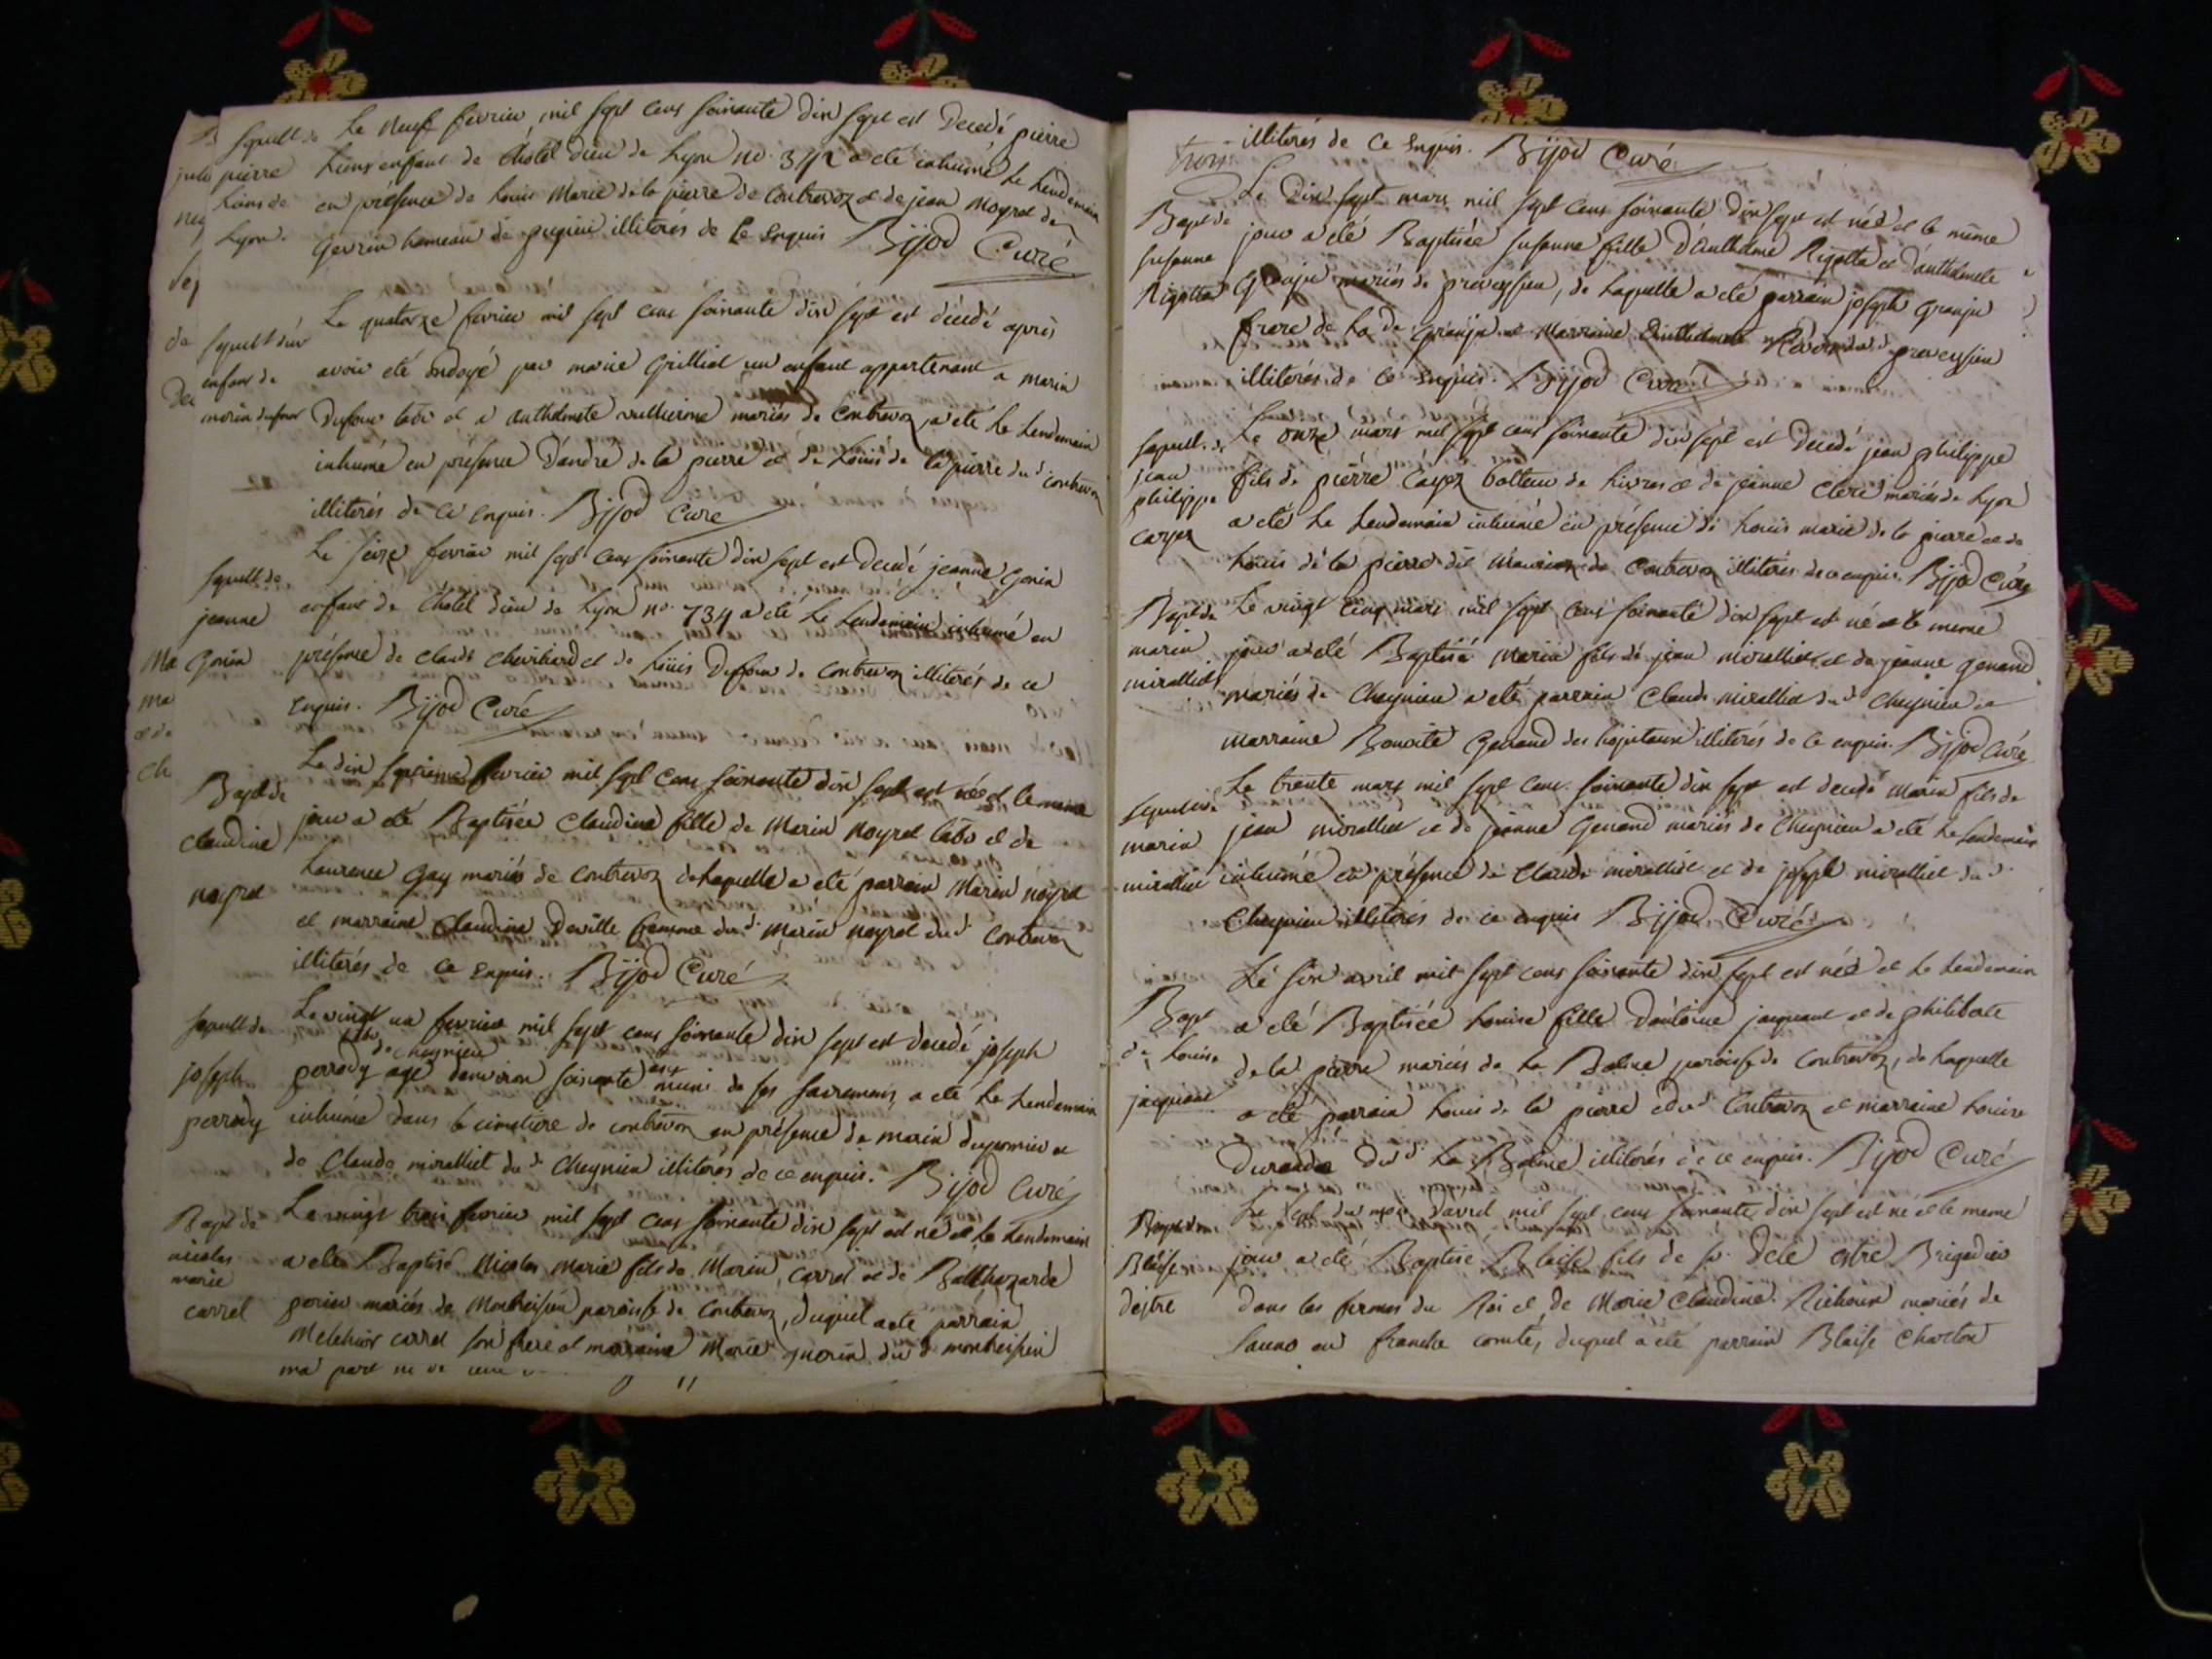 Sepult de
pierre
Lions de
Lyon.
Le neuf fevrier mil sept cens soixante dix sept est decedé pierre
Lions enfant de l'hotel dieu de Lyon no. 342 a eté inhumé le lendemain
en présence de Louis Marie de la pierre de Contrevoz et de jean Moyret de
Gevrin hameau de illiterés de ce enquis Bijod Curé
Sepult d'un
enfant de
morin dufour
Le quatorze fevrier mil sept cens soixante dix sept est décédé après
avoir eté ondoyé par marie Grilliet un enfant appartenant a marin
Dufour labr et a anthelmete vullierme mariés de Contrevoz, a eté le lendemain
inhumé en présence d'andré de la pierre et de Louis de la pierre dud. contrevoz
illiterés de ce enquis. Bijod Curé
Sepult. de
jeanne
Gonin
Le seize fevrier mil sept cens soixante dix sept est decedé jeanne Gonin
enfant de l'hotel dieu de Lyon no. 734 a eté le lendemain inhumé en
présence de claude et de Louis Duffour de Contrevoz illiterés de ce
enquis. Bijod Curé
Bapt de
Claudine
noyret
Le dix septieme fevrier mil sept cens soixante dix sept est née et le meme
jour a eté Baptisée Claudine fille de Marin noyret labr et de
Laurence Gay mariés de Contrevoz de laquelle a eté parrain Marin noyret
et marraine Claudine Deville femme dud. Marin noyret dud. Contrevoz
illiterés de ce enquis. Bijod Curé
Sepult de
joseph
perrody
Le vingt un fevrier mil sept cens soixante dix sept est decedé joseph
labr de cheynieu
perrody agé denviron soixante ans muni de ses sacremens, a eté le lendemain
inhumé dans le cimetiere de contrevoz en présence de marin duparmier et
de Claude miralliet dud. Cheynieu illiterés de ce enquis. Bijod Curé
Bapt de
nicolas
marie
carrel
Le vingt trois fevrier mil sept cens soixante dix sept est né et le lendemain
a eté Baptisé Nicolas Marie fils de Marin carrel et de Balthazarde
gorin mariés de Montbreisieu paroisse de Contrevoz, duquel a eté parrain
Melchior carrel son frere et marraine Marie dud. montbreisieu
trois
illiterés de ce enquis. Bijod Curé
Bapt de
susanne
Rigotta
Le Dix sept mars mil sept cens soixante dix sept est née et le même
jour a eté Baptisée susanne fille d'anthelme Rigotta et d'anthelmete
Granju mariés de preveyssieu, de laquelle a eté parrain joseph granju
frere de la de. granju et marraine Anthelmete dud. preveyssieu
illiterés de ce enquis. Bijod Curé
Sepult. de
jean
philippe
Cayez
Le onze mars mil sept cens soixante dix sept est decedé jean philippe
fils de pierre Cayez batteur de livres et de jeanne Clerc mariés de Lyon
a eté le lendemain inhumé en présence de Louis marie de la pierre et de
Louis de la pierre dit de Contrevoz illiterés de ce enquis. Bijod Curé
Bapt de
marin
miralliet
Le vingt cinq mars mil sept cens soixante dix sept est né et le meme
jour a eté Baptisé Marin fils de jean miralliet et de jeanne genand
mariés de Cheynieu a eté parrain Claude miralliet dud. Cheynieu et
marraine Benoite Genand des hopitaux illiterés de ce enquis. Bijod Curé
Sepult de
marin
miralliet
Le trente mars mil sept cens soixante dix sept est decedé Marin fils de
jean miralliet et de jeanne Genand mariés de Cheynieu a eté le lendemain
inhumé en présence de Claude miralliet et de joseph miralliet dud.
Cheynieu illiterés de ce enquis Bijod Curé
Bapt
de Louise
jacquant
Le six avril mil sept cens soixante dix sept est née et le lendemain
a eté Baptisée Louise fille d'antoine jacquant et de philiberte
de la pierre mariés de la Balme paroisse de Contrevoz, de laquelle
a eté parrain Louis de la pierre dud. Contrevoz et marraine Louise
Durande dud. La Balme illiterés de ce enquis. Bijod Curé
Blaise
Destre
Le sept du mois d'avril mil sept cens soixante dix sept est né et le meme
jour a eté Baptisé Blaise fils de Brigadier
dans les fermes du Roi et de Marie Claudine mariés de
en franche comté, duquel a eté parrain Blaise Charton